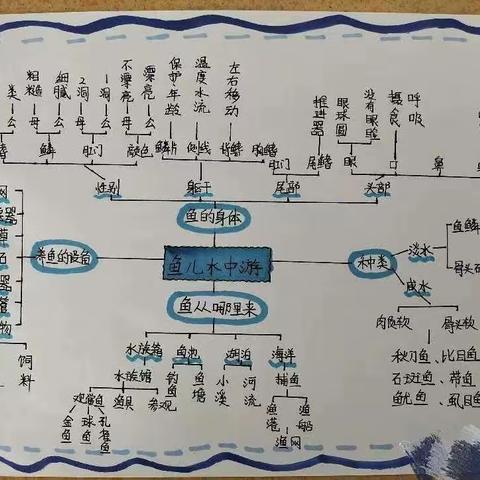 鱼儿水中游
鱼的身体
性别
躯干
尾部
头部
鳞
肛门
颜色
鳞片
侧线
胸鳍
肛门
尾鳍
眼
口
鼻
粗糙
细腻
2洞
1洞
不漂亮
漂亮
母
公
母
公
母
公
保护·年龄
温度水流
左右移动
推进器
眼球圆
没有眼睑
摄食
呼吸
养鱼的设备
网
器
草
石
器
物
饲料
种类
淡水
咸水
鱼鳞
骨头
肉质软
骨头软
秋刀鱼、比目鱼
石斑鱼、带鱼
鱿鱼、虱目鱼
鱼从哪里来
水族箱
鱼池
湖泊
海洋
水族馆
钓鱼
鱼塘
小溪
河流
捕鱼
观赏鱼
鱼具
参观
金鱼
球鱼
孔雀鱼
渔港
渔船
渔网